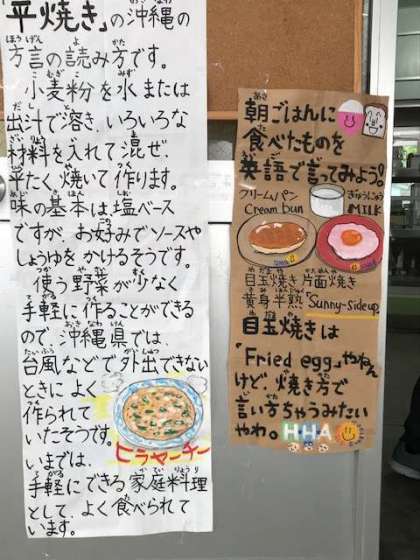 「平焼き」の沖縄の
方言の読み方です。
小麦粉を水または
出汁で溶き、いろいろな
材料を入れて混ぜ、
平たく焼いて作ります。
味の基本は塩ベース
ですが、お好みでソースや
しょうゆをかけるそうです。
使う野菜が少なく
手軽に作ることができる
ので、沖縄県では、
台風などで外出できない
ときによく
作られて
いたそうです。
ヒラヤーチー
いまでは、
手軽にできる家庭料理
として、よく食べられて
います。
朝ごはんに
食べたものを
英語で言ってみよう!
クリームパン
Cream bun
ぎゅうにゅう
MILK
目玉焼き 片面焼き
黄身半熟 "Sunny-side up
目玉焼きは
「Fried egg」やねん
けど 焼き方で
言い方ちゃうみたい
やわ。HHA